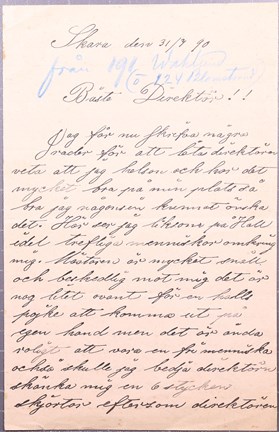 Skara den 31/7 90
från 191 Wahlund
(o 124 Blomstrand)
Bäste Direktör!!
Jag får nu skrifva några
rader för att låta direktören
veta att jag helsen och har det
mycket bra på min plats så
bra jag någonsin kunnat önska
det. Här ser jag liksom på Hall
idel trefliga menniskor omkring
mig. Mästaren är mycket snäll
och beskedlig mot mig det är
nog litet ovant för en halls
pojke att komma ut på
egen hand men det är ändå
roligt att vara en fri menniska
också skulle jag bedja direktören
skänka mig en 6 stycken
skjortor eftersom direktören